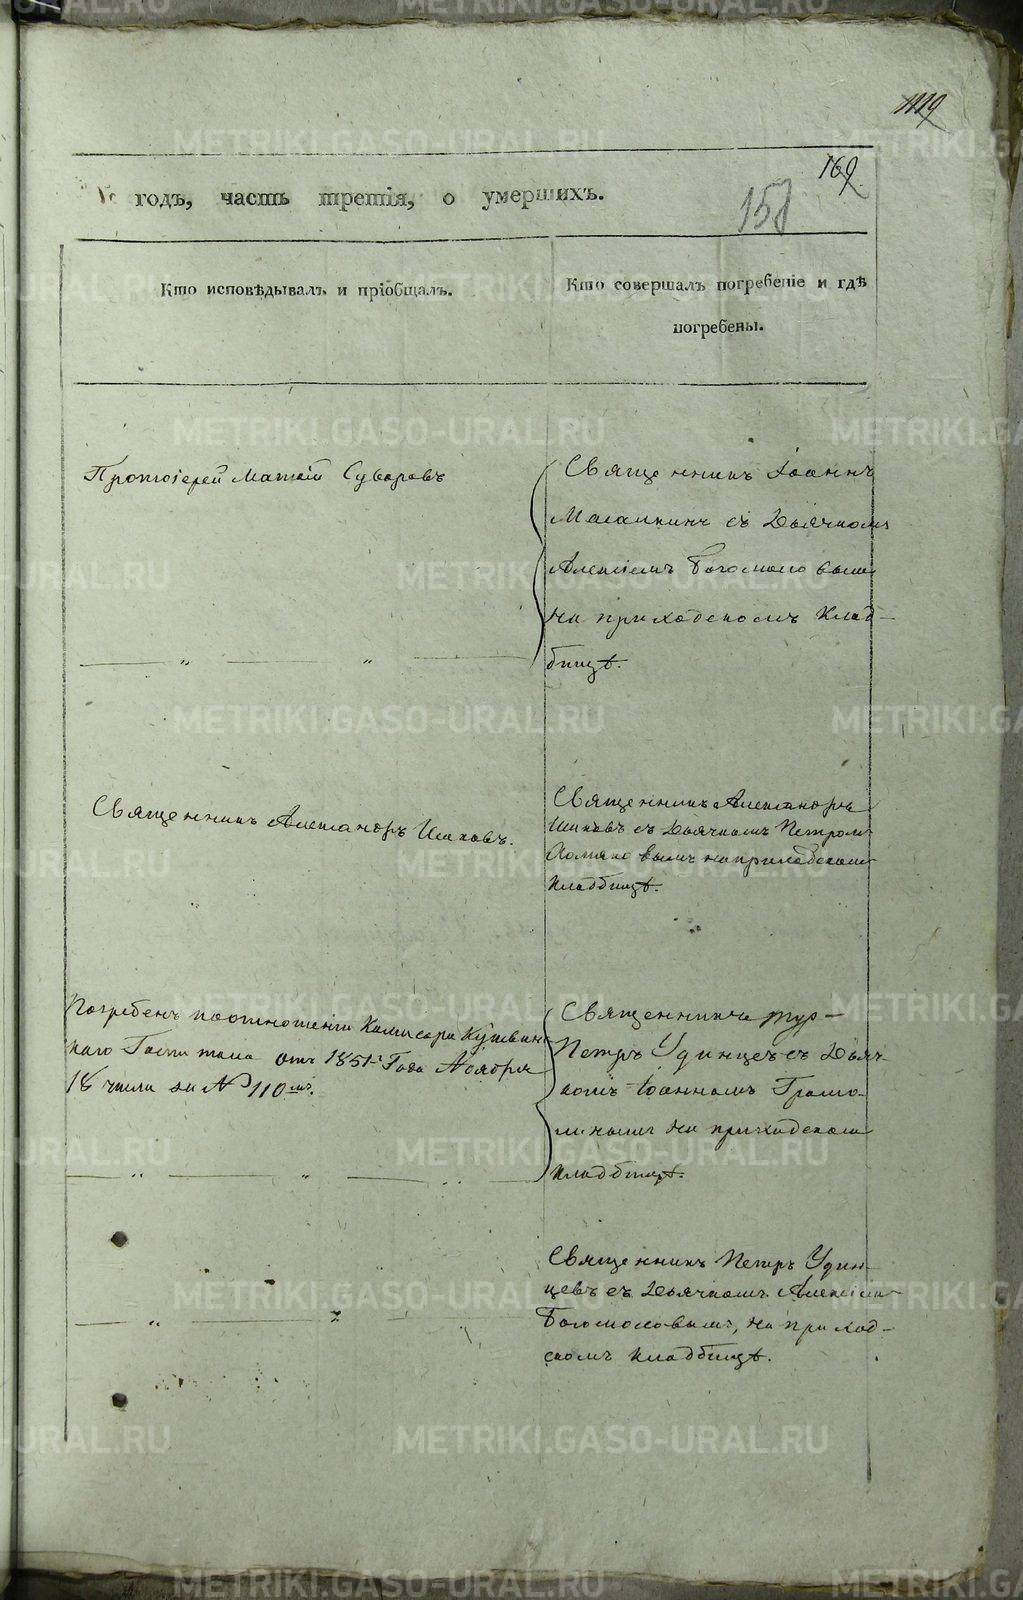 1119
169
158
годъ, часть третія, о умершихъ.
Кто исповѣдывалъ и пріобщалъ.
Кто совершалъ погребеніе и гдѣ
погребены.
Протоіерей Матѳій Суворовъ
Священникъ Іоаннъ
съ Дьячкомъ
Алексіемъ Богомоловымъ
на приходскомъ Клад-
бищѣ.
Священникъ Александръ
Священникъ Александръ
съ Дьячкомъ Петромъ
Хомяковымъ на приходскомъ
Кладбищѣ.
Погребенъ по отношенію Комисара Кушвин-
скаго Госпиталя отъ 1851 Года Ноября
18 числа за № 110мъ.
Священникъ
Петръ Удинцевъ съ Дьяч-
комъ Іоанномъ
на приходскомъ
Кладбищѣ.
Священникъ Петръ Удин-
цевъ съ Дьячкомъ Алексіемъ
Богомоловымъ, на приход-
скомъ кладбищѣ.
METRIKI.GASO-URAL.RU